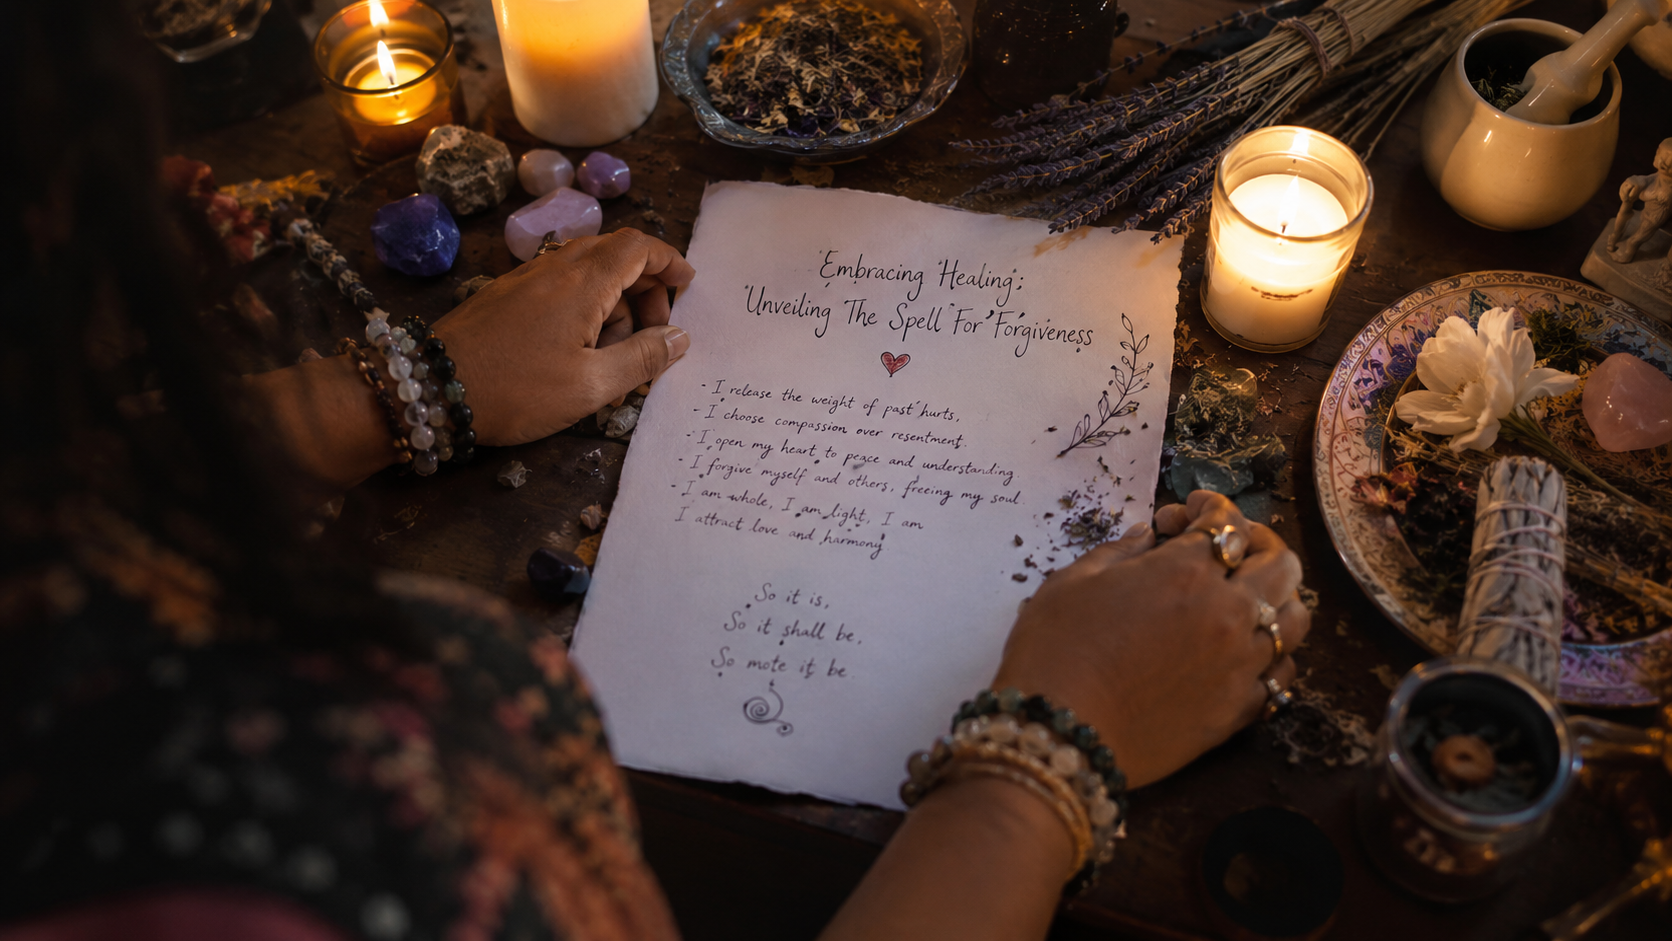 Embracing Healing:
Unveiling The Spell For Forgiveness
- I release the weight of past hurts,
- I choose compassion over resentment.
- I open my heart to peace and understanding.
- I forgive myself and others, freeing my soul
- I am whole, I am light, I am
I attract love and harmony
So it is,
So it shall be,
So mote it be